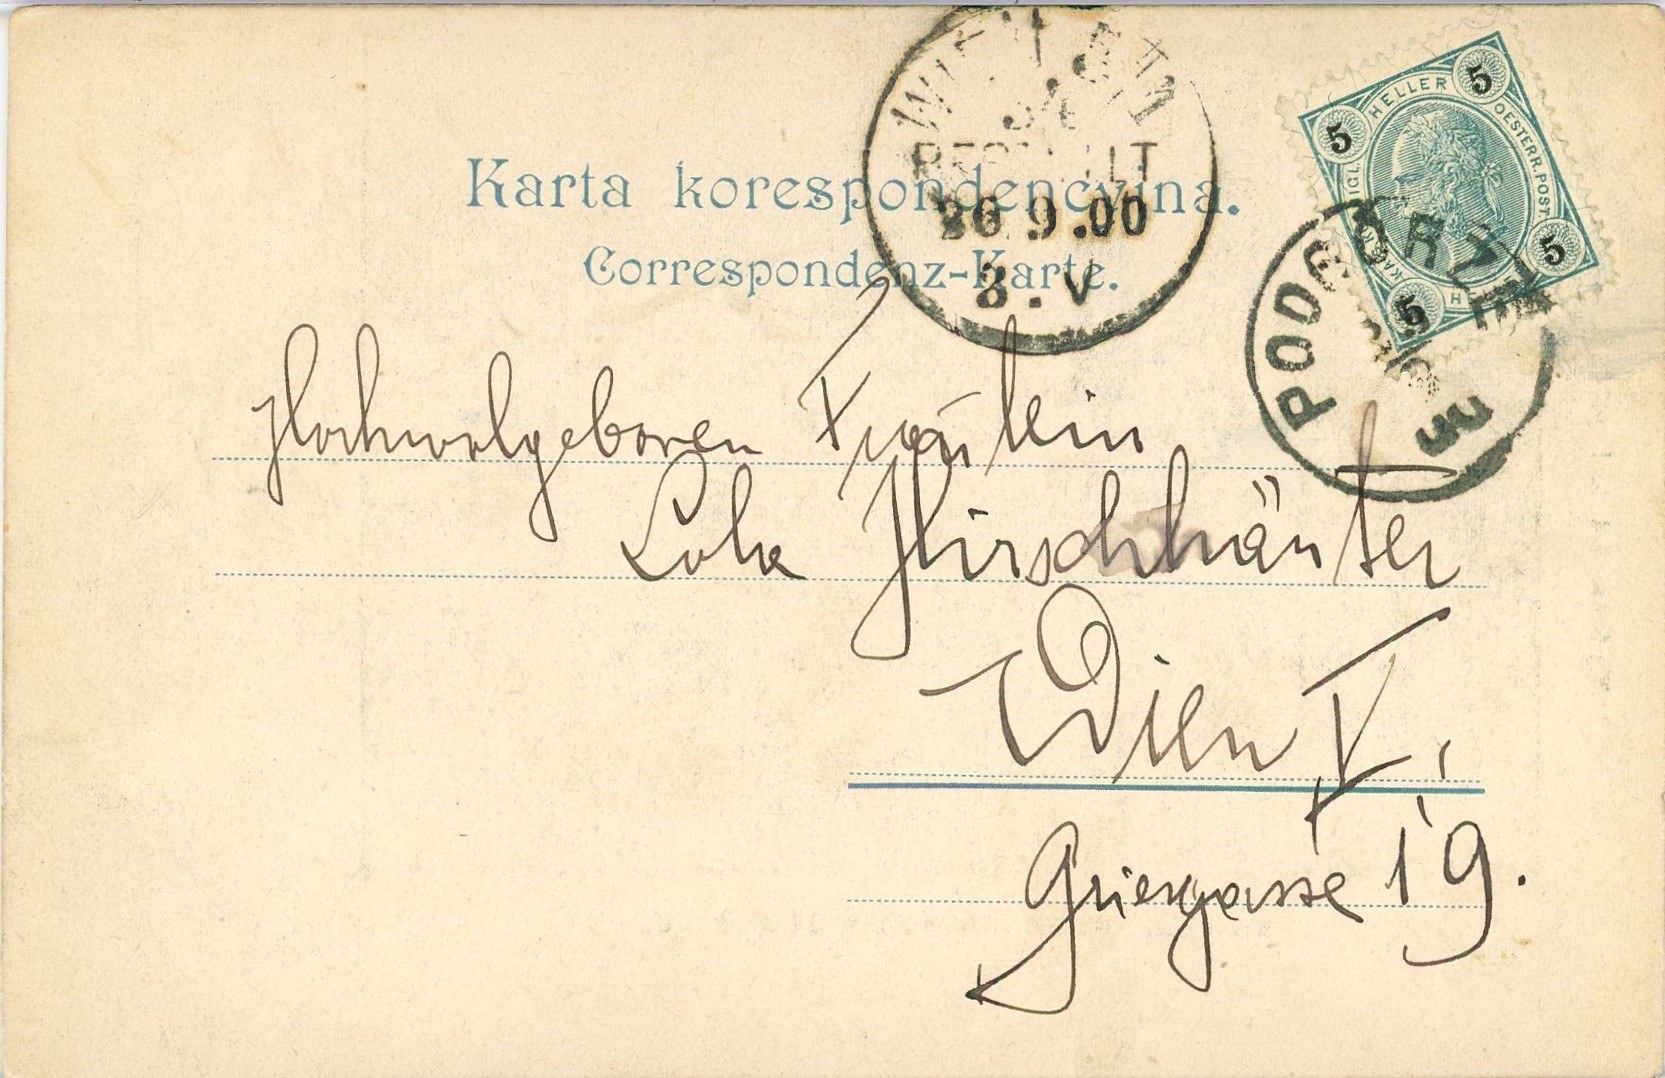 Karta korespondencyjna.
Correspondenz-Karte.
WIEN
BESTELLT
9.00
8.V
5 HELLER 5
OESTERR. POST
5
5
PODGORZE
Hochwolgeboren Fräulein
Lola Hirschhäuter
Wien V.
Griesgasse 19.